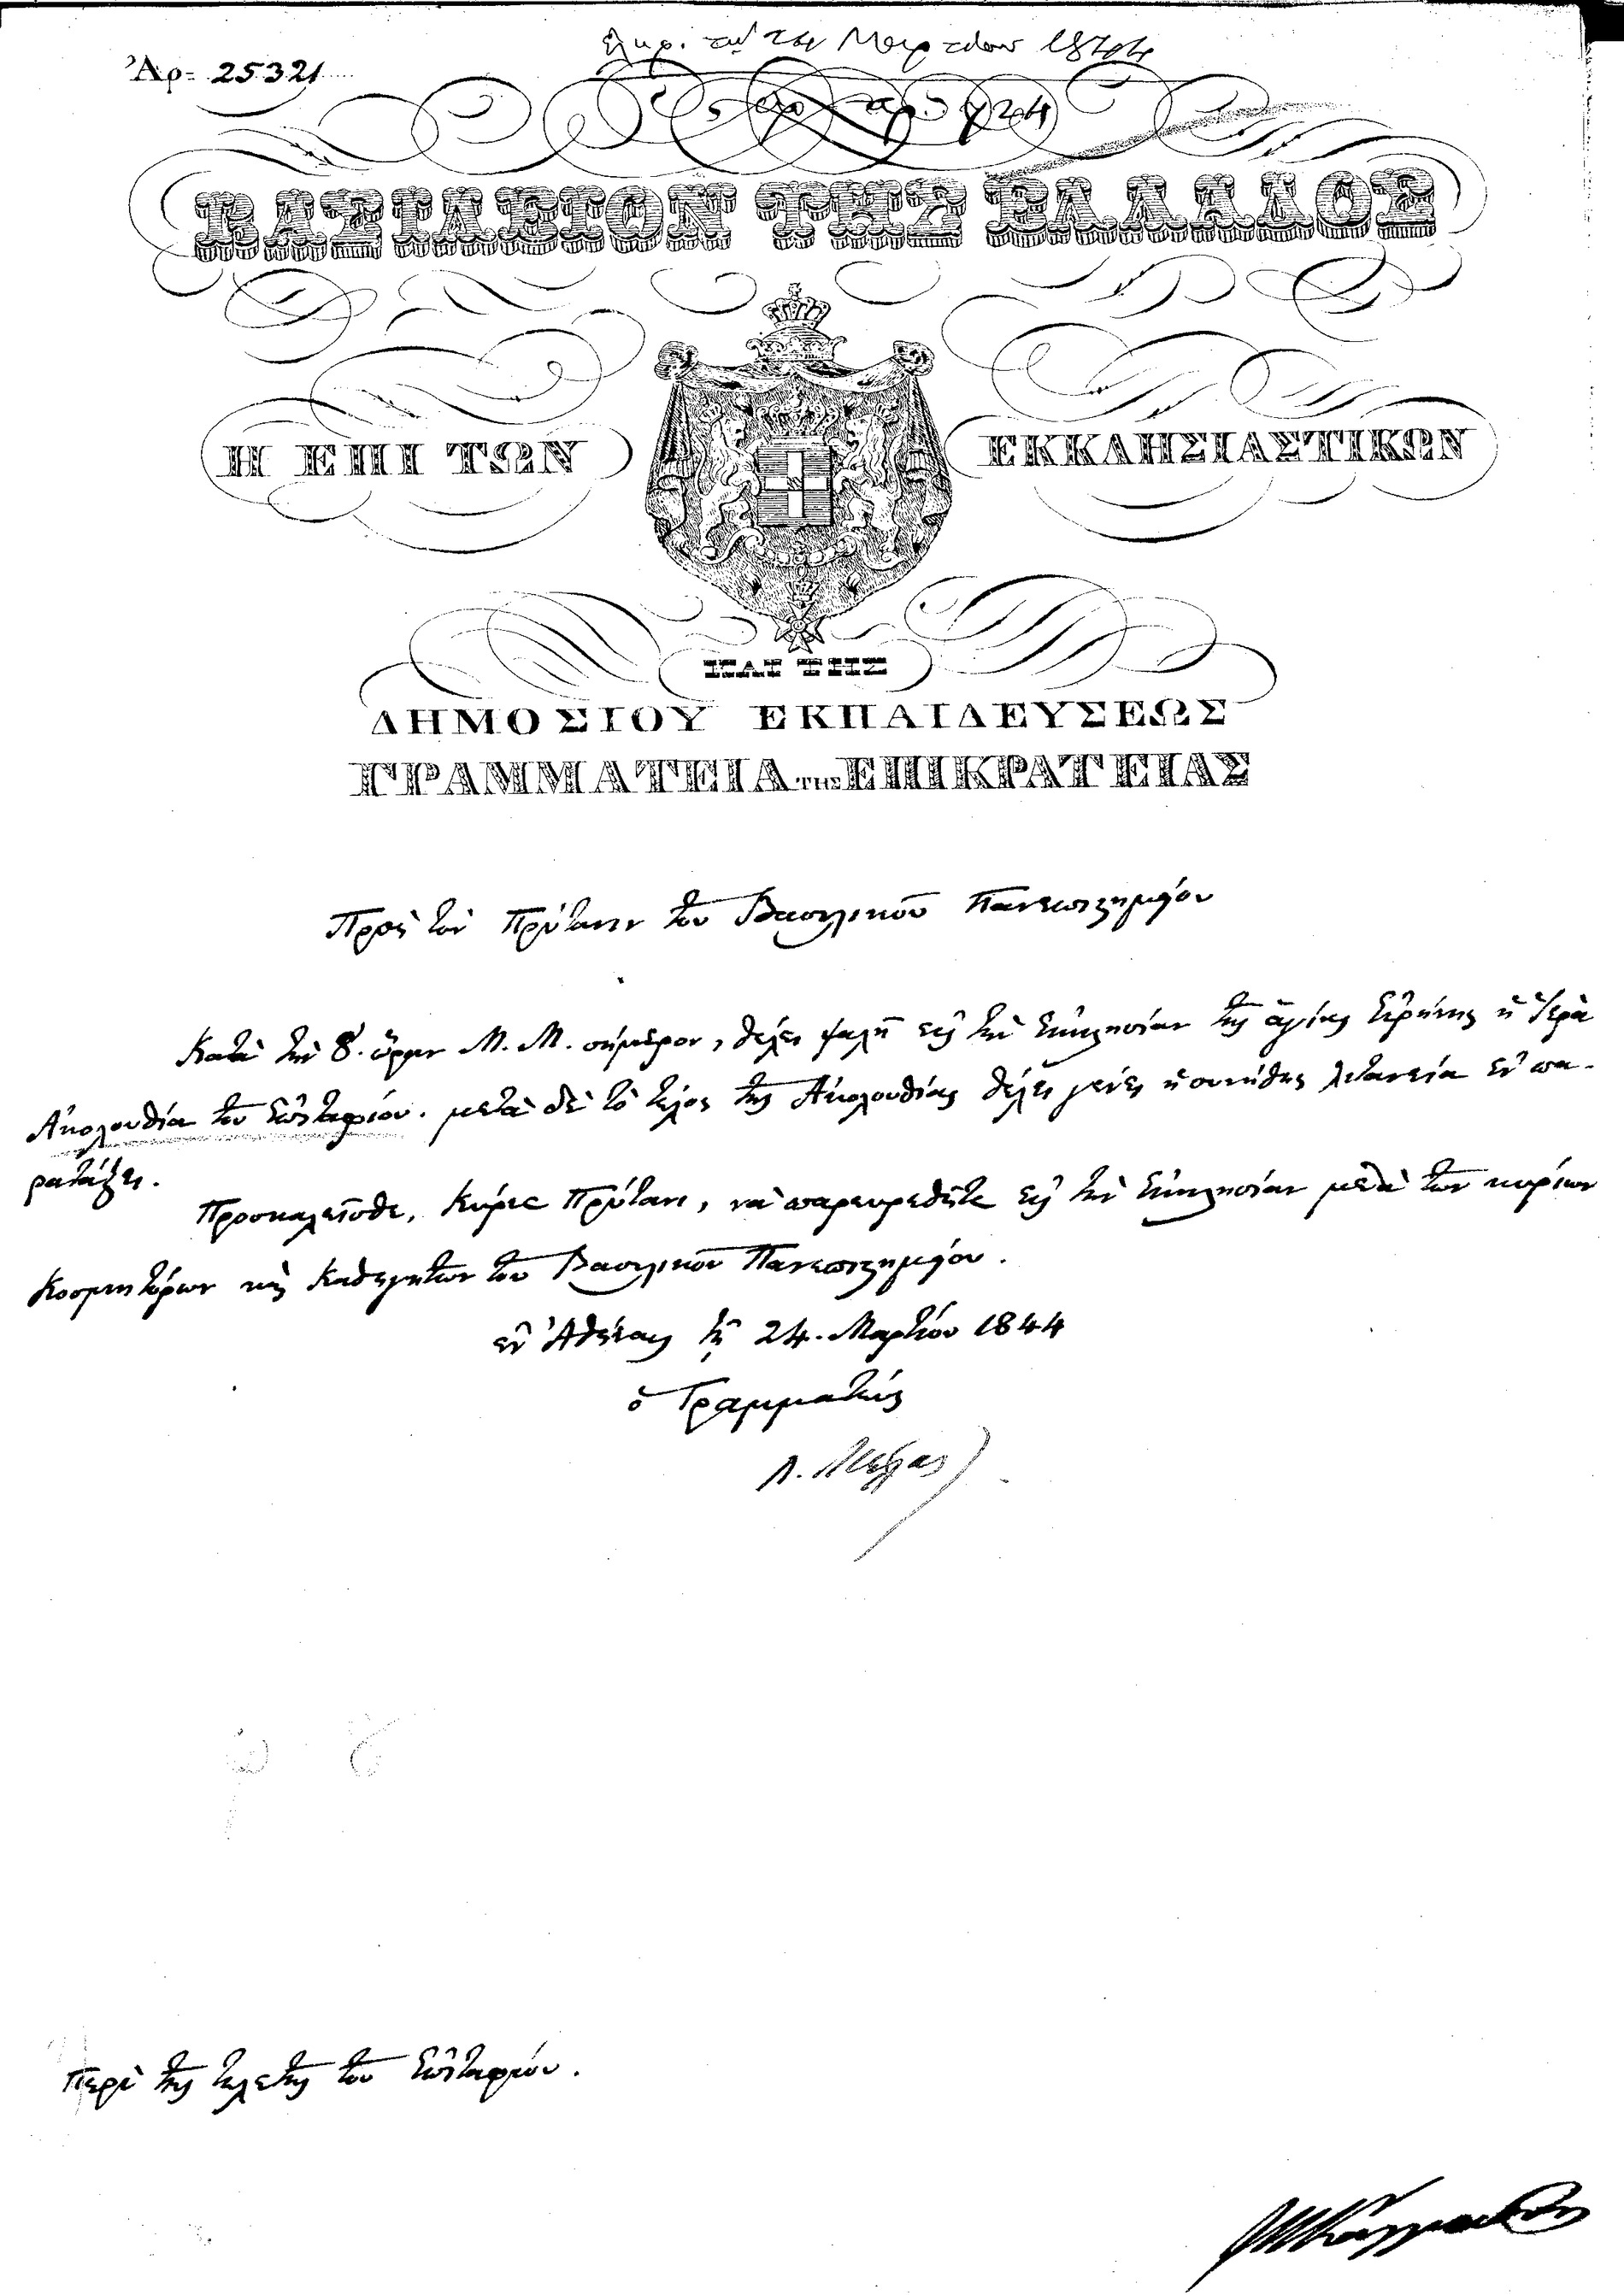 Ἀρ. 25321
ἐλήφ. τῇ 24 Μαρτίου 1844
ἀρ. 724
ΒΑΣΙΛΕΙΟΝ ΤΗΣ ΕΛΛΑΔΟΣ
Η ΕΠΙ ΤΩΝ ΕΚΚΛΗΣΙΑΣΤΙΚΩΝ
ΚΑΙ ΤΗΣ
ΔΗΜΟΣΙΟΥ ΕΚΠΑΙΔΕΥΣΕΩΣ
ΓΡΑΜΜΑΤΕΙΑ ΤΗΣ ΕΠΙΚΡΑΤΕΙΑΣ
Πρὸς τὸν Πρύτανιν τοῦ Βασιλικοῦ Πανεπιστημίου
Κατὰ τὴν 8. ὥραν Μ. Μ. σήμερον, θέλει ψαλῆ εἰς τὴν Ἐκκλησίαν τῆς ἁγίας Εἰρήνης ἡ Ἱερὰ
Ἀκολουθία τοῦ Ἐπιταφίου. μετὰ δὲ τὸ τέλος τῆς Ἀκολουθίας θέλει γείνει ἡ συνήθης λιτανεία ἐν πα-
ρατάξει.
Προσκαλεῖσθε, Κύριε Πρύτανι, νὰ παρευρεθῆτε εἰς τὴν Ἐκκλησίαν μετὰ τῶν κυρίων
Κοσμητόρων καὶ Καθηγητῶν τοῦ Βασιλικοῦ Πανεπιστημίου.
ἐν Ἀθήναις τῇ 24. Μαρτίου 1844
ὁ Γραμματεὺς
Λ. Μελᾶς
Περὶ τῆς τελετῆς τοῦ Ἐπιταφίου.